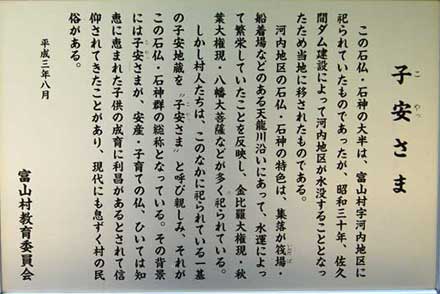 子安さま
こやっ
この石仏・石神の大半は、富山村字河内地区に
祀られていたものであったが、昭和三十年、佐久
間ダム建設によって河内地区が水没することとなっ
たため当地に移されたものである。
河内地区の石仏・石神の特色は、集落が筏場・
船着場などのある天龍川沿いにあって、水運によっ
て繁栄していたことを反映し、金比羅大権現・秋
葉大権現・八幡大菩薩などが多く祀られている。
しかし村人たちは、このなかに祀られている一基
の子安地蔵を〝子安さま〟と呼び親しみ、それが
この石仏・石神群の総称となっている。その背景
には子安さまが、安産・子育ての仏、ひいては知
恵に恵まれた子供の成育に利昌があるとされて信
仰されてきたことがあり、現代にも息ずく村の民
俗がある。
平成三年八月
富山村教育委員会